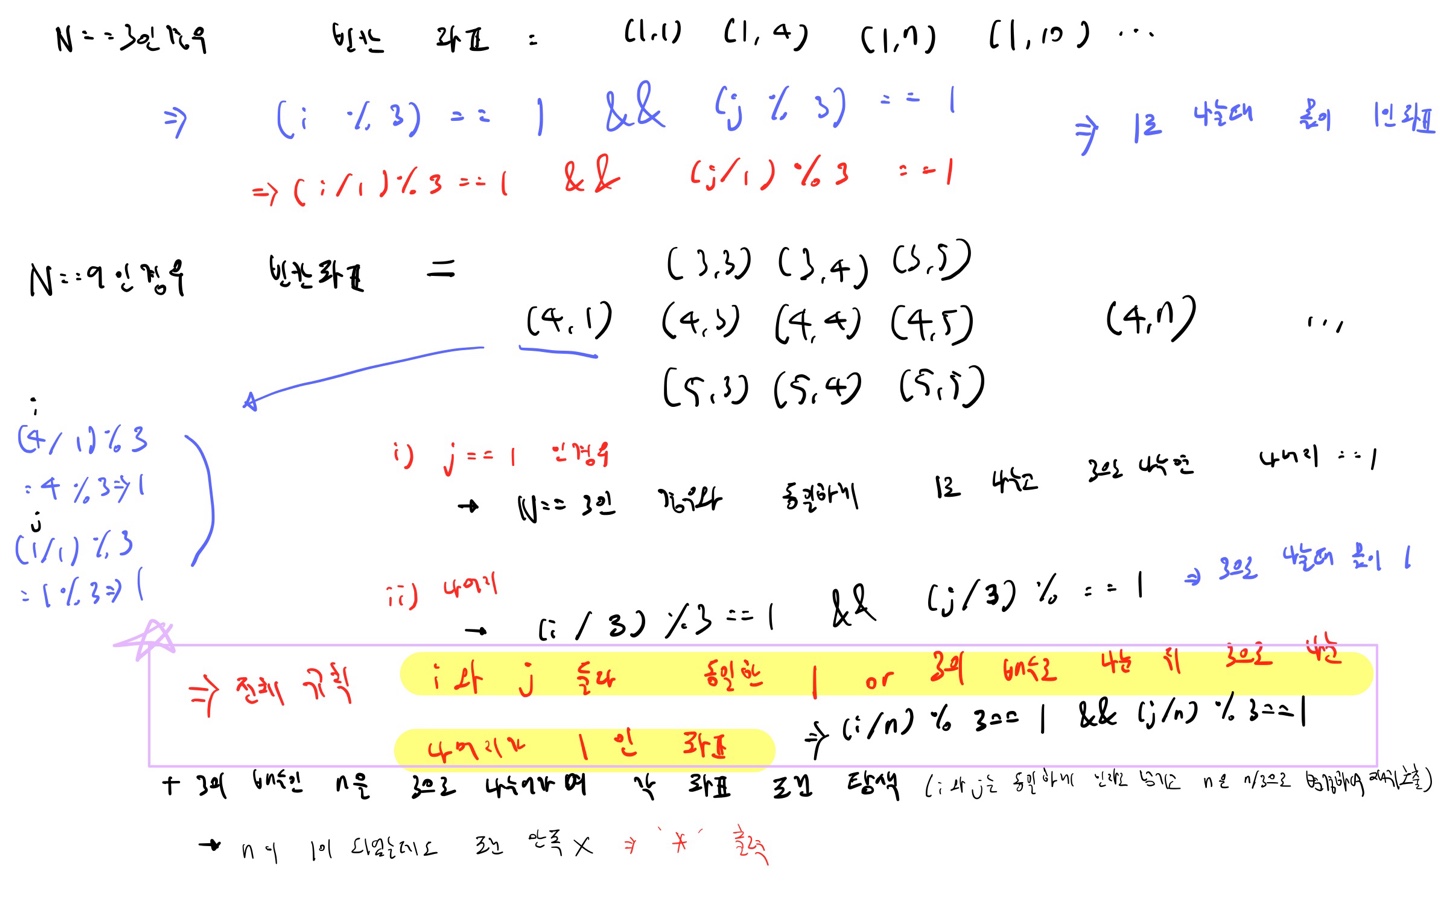 N==3인경우 빈칸 좌표 : (1,1) (1,4) (1,7) (1,10) ...
⇒ (i % 3) == 1 && (j % 3) == 1 ⇒ 1로 나눌때 몫이 1인 좌표
⇒ (i/1)%3==1 && (j/1)%3 ==1
N==9인경우 빈칸좌표 =
(3,3) (3,4) (3,5)
(4,1) (4,3) (4,4) (4,5) (4,7) ...
(5,3) (5,4) (5,5)
i
(4/1)%3
=4%3⇒1
j
(1/1)%3
=1%3⇒1
i) j==1 인경우
→ N==3인 경우와 동일하게 1로 나누고 3으로 나누면 나머지==1
ii) 나머지
→ (i/3)%3==1 && (j/3)% ==1 ⇒ 3으로 나눌때 몫이 1
⇒ 전체 규칙 i와 j 둘다 동일한 1 or 3의 배수로 나눈 뒤 3으로 나눈
나머지가 1인 좌표 ⇒ (i/n)%3==1 && (j/n)%3==1
+ 3의 배수인 n을 3으로 나누어가며 각 좌표 조건 탐색 (i와 j는 동일하게 인자로 넘기고 n은 n/3으로 변경하여 재귀호출)
→ n이 1이 되었는데도 조건 만족 X ⇒ '*' 출력